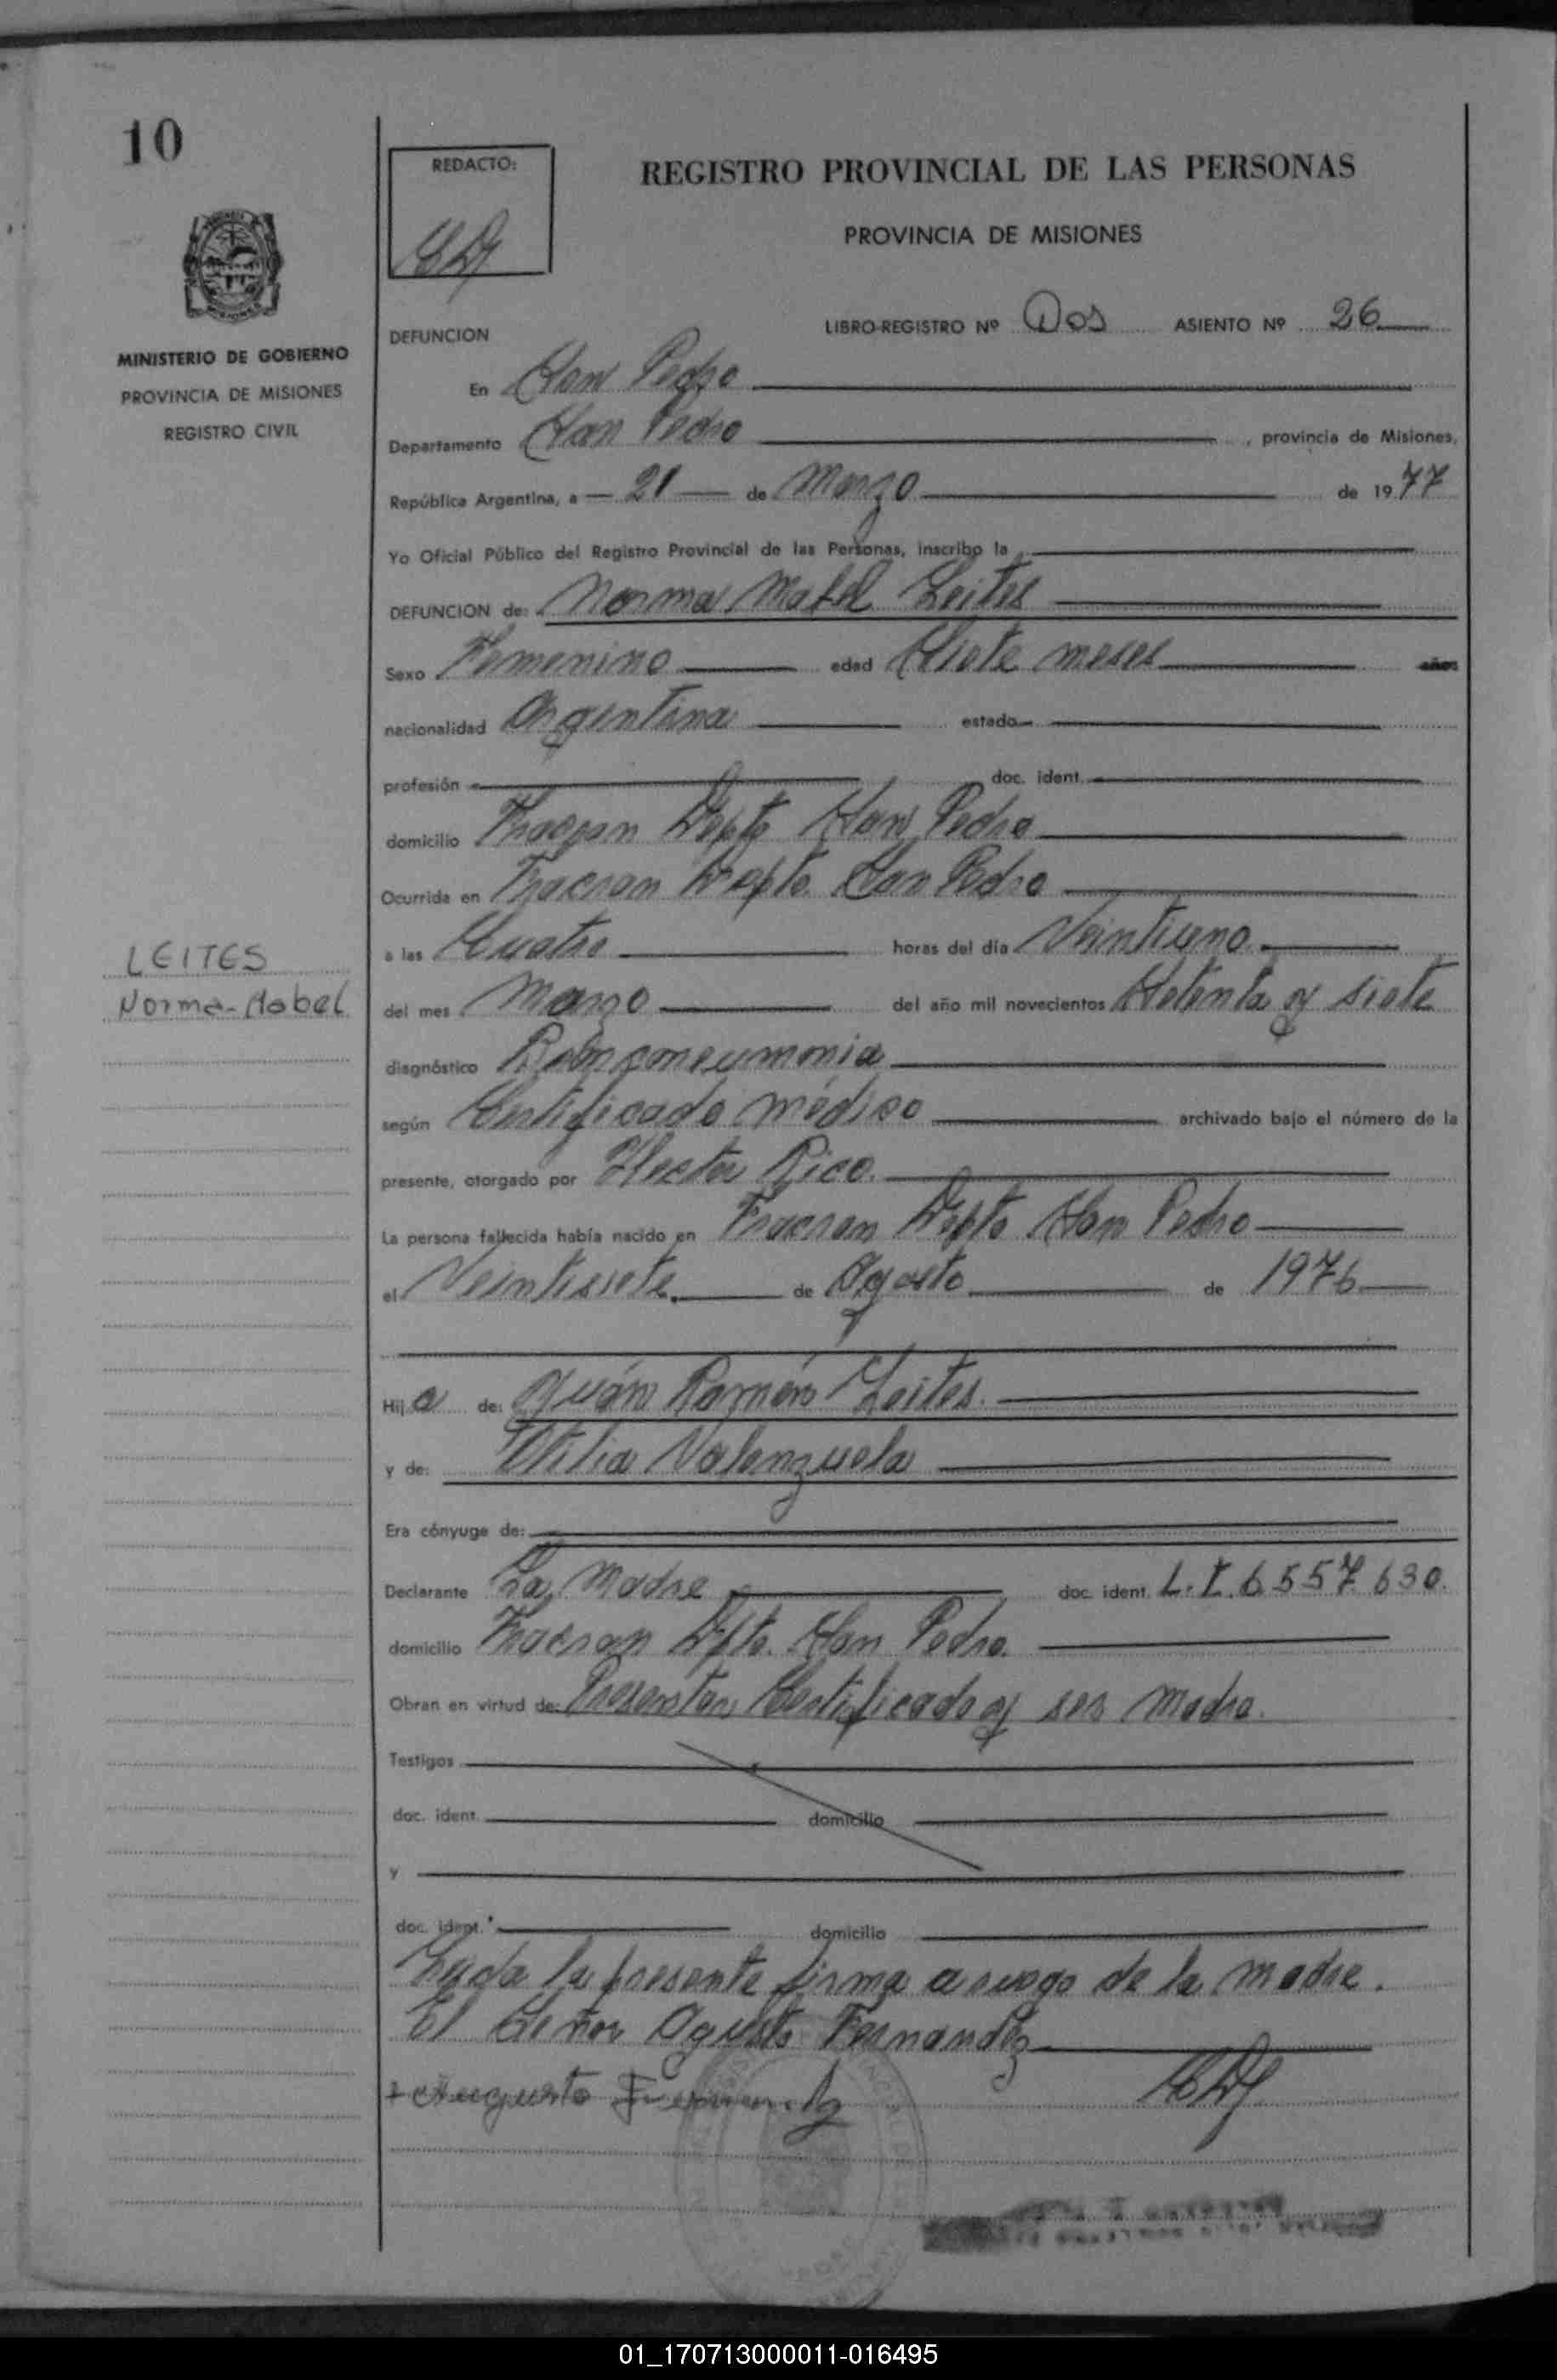 10
REDACTO:
REGISTRO PROVINCIAL DE LAS PERSONAS
PROVINCIA DE MISIONES
MINISTERIO DE GOBIERNO
PROVINCIA DE MISIONES
REGISTRO CIVIL
LEITES
Norma-Mabel
DEFUNCION
LIBRO-REGISTRO Nº Dos ASIENTO Nº 26
En San Pedro
Departamento San Pedro, provincia de Misiones,
República Argentina, a 21 de Marzo de 1977
Yo Oficial Público del Registro Provincial de las Personas, inscribo la
DEFUNCION de: Norma Mabel Leites
Sexo Femenino edad Siete meses años
nacionalidad Argentina estado
profesión doc. ident.
domicilio Fracran Depto San Pedro
Ocurrida en Fracran Depto. San Pedro
a las Cuatro horas del día Veintiuno
del mes Marzo del año mil novecientos Setenta y siete
diagnóstico Bronconeumonia
según Certificado médico archivado bajo el número de la
presente, otorgado por Hector Rico.
La persona fallecida había nacido en Fracran Depto San Pedro
el Veintisiete de Agosto de 1976
Hij a de: Juán Ramón Leites.
y de: Valenzuela
Era cónyuge de:
Declarante La Madre doc. ident. L.I. 6557630.
domicilio Fracran Dpto. San Pedro.
Obran en virtud de: Presentar Certificado y ser Madre.
Testigos
doc. ident. domicilio
y
doc. ident. domicilio
Leida la presente firma a ruego de la madre.
El Señor Agusto Fernandez
Augusto
01_170713000011-016495